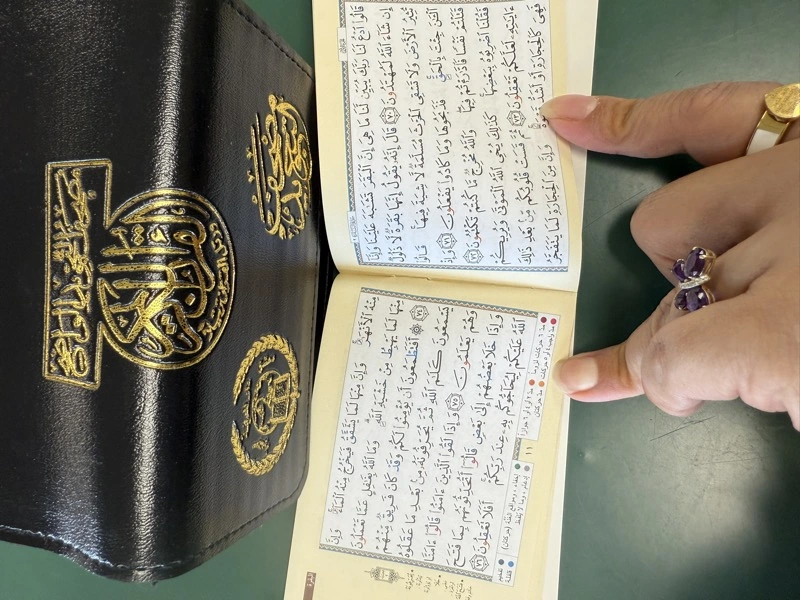 قَالُوا۟ ٱدْعُ لَنَا رَبَّكَ يُبَيِّن لَّنَا مَا هِىَ إِنَّ ٱلْبَقَرَ تَشَٰبَهَ عَلَيْنَا وَإِنَّآ
إِن شَآءَ ٱللَّهُ لَمُهْتَدُونَ ٧٠ قَالَ إِنَّهُۥ يَقُولُ إِنَّهَا بَقَرَةٌ لَّا ذَلُولٌ
تُثِيرُ ٱلْأَرْضَ وَلَا تَسْقِى ٱلْحَرْثَ مُسَلَّمَةٌ لَّا شِيَةَ فِيهَا قَالُوا۟
ٱلْـَٰٔنَ جِئْتَ بِٱلْحَقِّ فَذَبَحُوهَا وَمَا كَادُوا۟ يَفْعَلُونَ ٧١ وَإِذْ
قَتَلْتُمْ نَفْسًا فَٱدَّٰرَْٰٔتُمْ فِيهَا وَٱللَّهُ مُخْرِجٌ مَّا كُنتُمْ تَكْتُمُونَ ٧٢
فَقُلْنَا ٱضْرِبُوهُ بِبَعْضِهَا كَذَٰلِكَ يُحْىِ ٱللَّهُ ٱلْمَوْتَىٰ وَيُرِيكُمْ
ءَايَٰتِهِۦ لَعَلَّكُمْ تَعْقِلُونَ ٧٣ ثُمَّ قَسَتْ قُلُوبُكُم مِّنۢ بَعْدِ ذَٰلِكَ
فَهِىَ كَٱلْحِجَارَةِ أَوْ أَشَدُّ وَإِنَّ مِنَ ٱلْحِجَارَةِ لَمَا يَتَفَجَّرُ
مِنْهُ ٱلْأَنْهَٰرُ وَإِنَّ مِنْهَا لَمَا يَشَّقَّقُ فَيَخْرُجُ مِنْهُ ٱلْمَآءُ وَإِنَّ
مِنْهَا لَمَا يَهْبِطُ مِنْ خَشْيَةِ ٱللَّهِ وَمَا ٱللَّهُ بِغَٰفِلٍ عَمَّا تَعْمَلُونَ
٧٤ أَفَتَطْمَعُونَ أَن يُؤْمِنُوا۟ لَكُمْ وَقَدْ كَانَ فَرِيقٌ مِّنْهُمْ
يَسْمَعُونَ كَلَٰمَ ٱللَّهِ ثُمَّ يُحَرِّفُونَهُۥ مِنۢ بَعْدِ مَا عَقَلُوهُ
وَهُمْ يَعْلَمُونَ ٧٥ وَإِذَا لَقُوا۟ ٱلَّذِينَ ءَامَنُوا۟ قَالُوٓا۟ ءَامَنَّا
وَإِذَا خَلَا بَعْضُهُمْ إِلَىٰ بَعْضٍ قَالُوٓا۟ أَتُحَدِّثُونَهُم بِمَا فَتَحَ
ٱللَّهُ عَلَيْكُمْ لِيُحَآجُّوكُم بِهِۦ عِندَ رَبِّكُمْ أَفَلَا تَعْقِلُونَ ٧٦
١١
القرآن الكريم